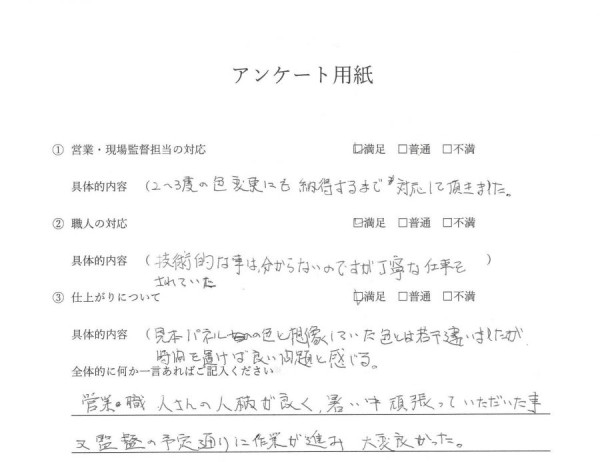 アンケート用紙
① 営業・現場監督担当の対応 □満足 □普通 □不満
具体的内容 (2〜3度の色変更にも納得するまで対応して頂きました。
② 職人の対応 □満足 □普通 □不満
具体的内容 (技術的な事は分からないのですが丁寧な仕事を )
されていた
③ 仕上がりについて □満足 □普通 □不満
具体的内容 (見本パネルの色と想像していた色とは若干違いましたが
時間を置けば良い問題と感じる。
全体的に何か一言あればご記入ください
営業・職人さんの人柄が良く、暑い中頑張っていただいた事
又監督の予定通りに作業が進み 大変良かった。